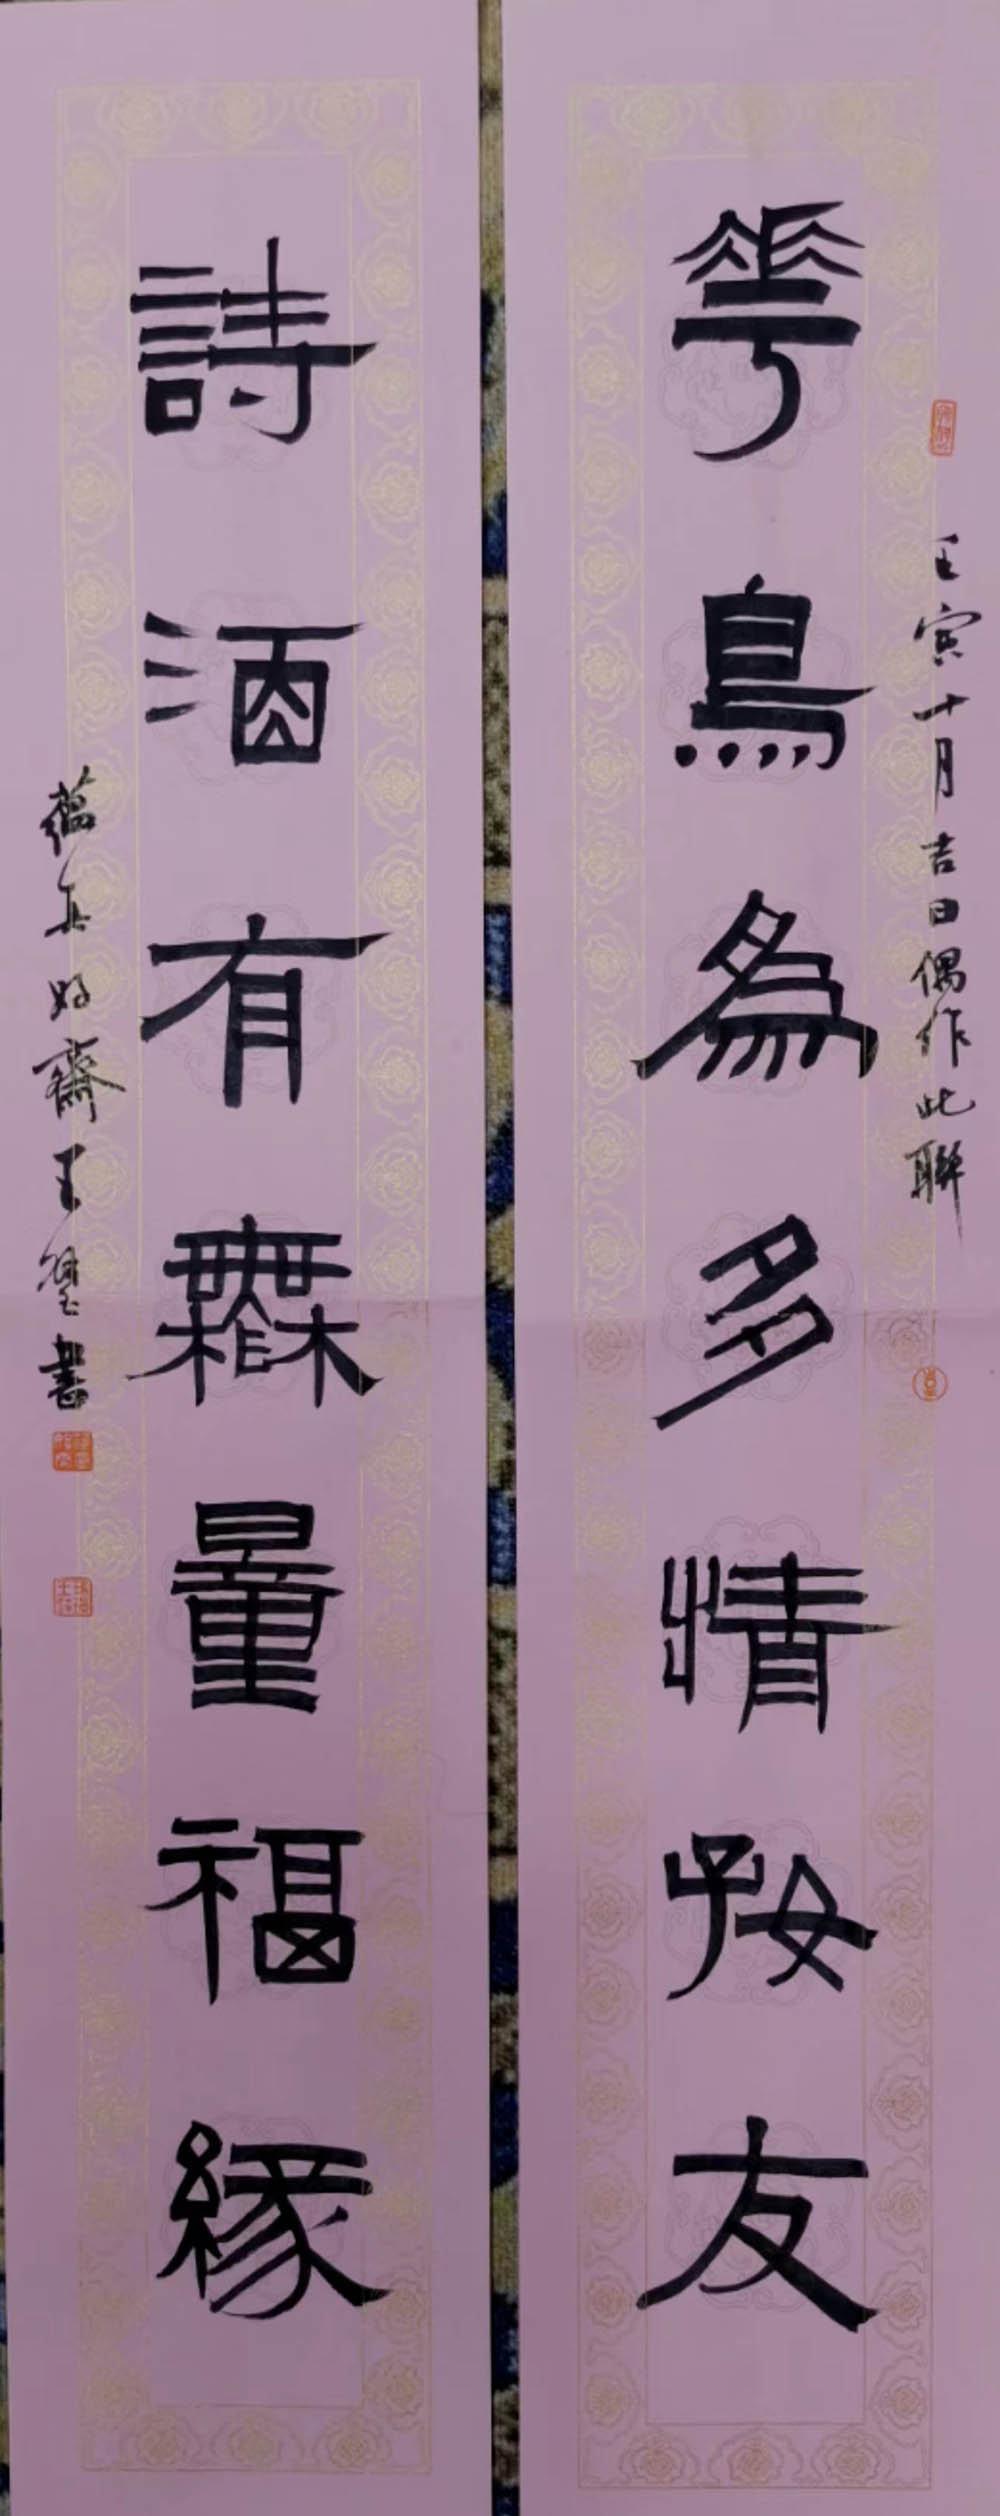 壬寅十月吉日偶作此聯
華鳥為多情好友
詩酒有無量福緣
蘊真好齋王瑬書